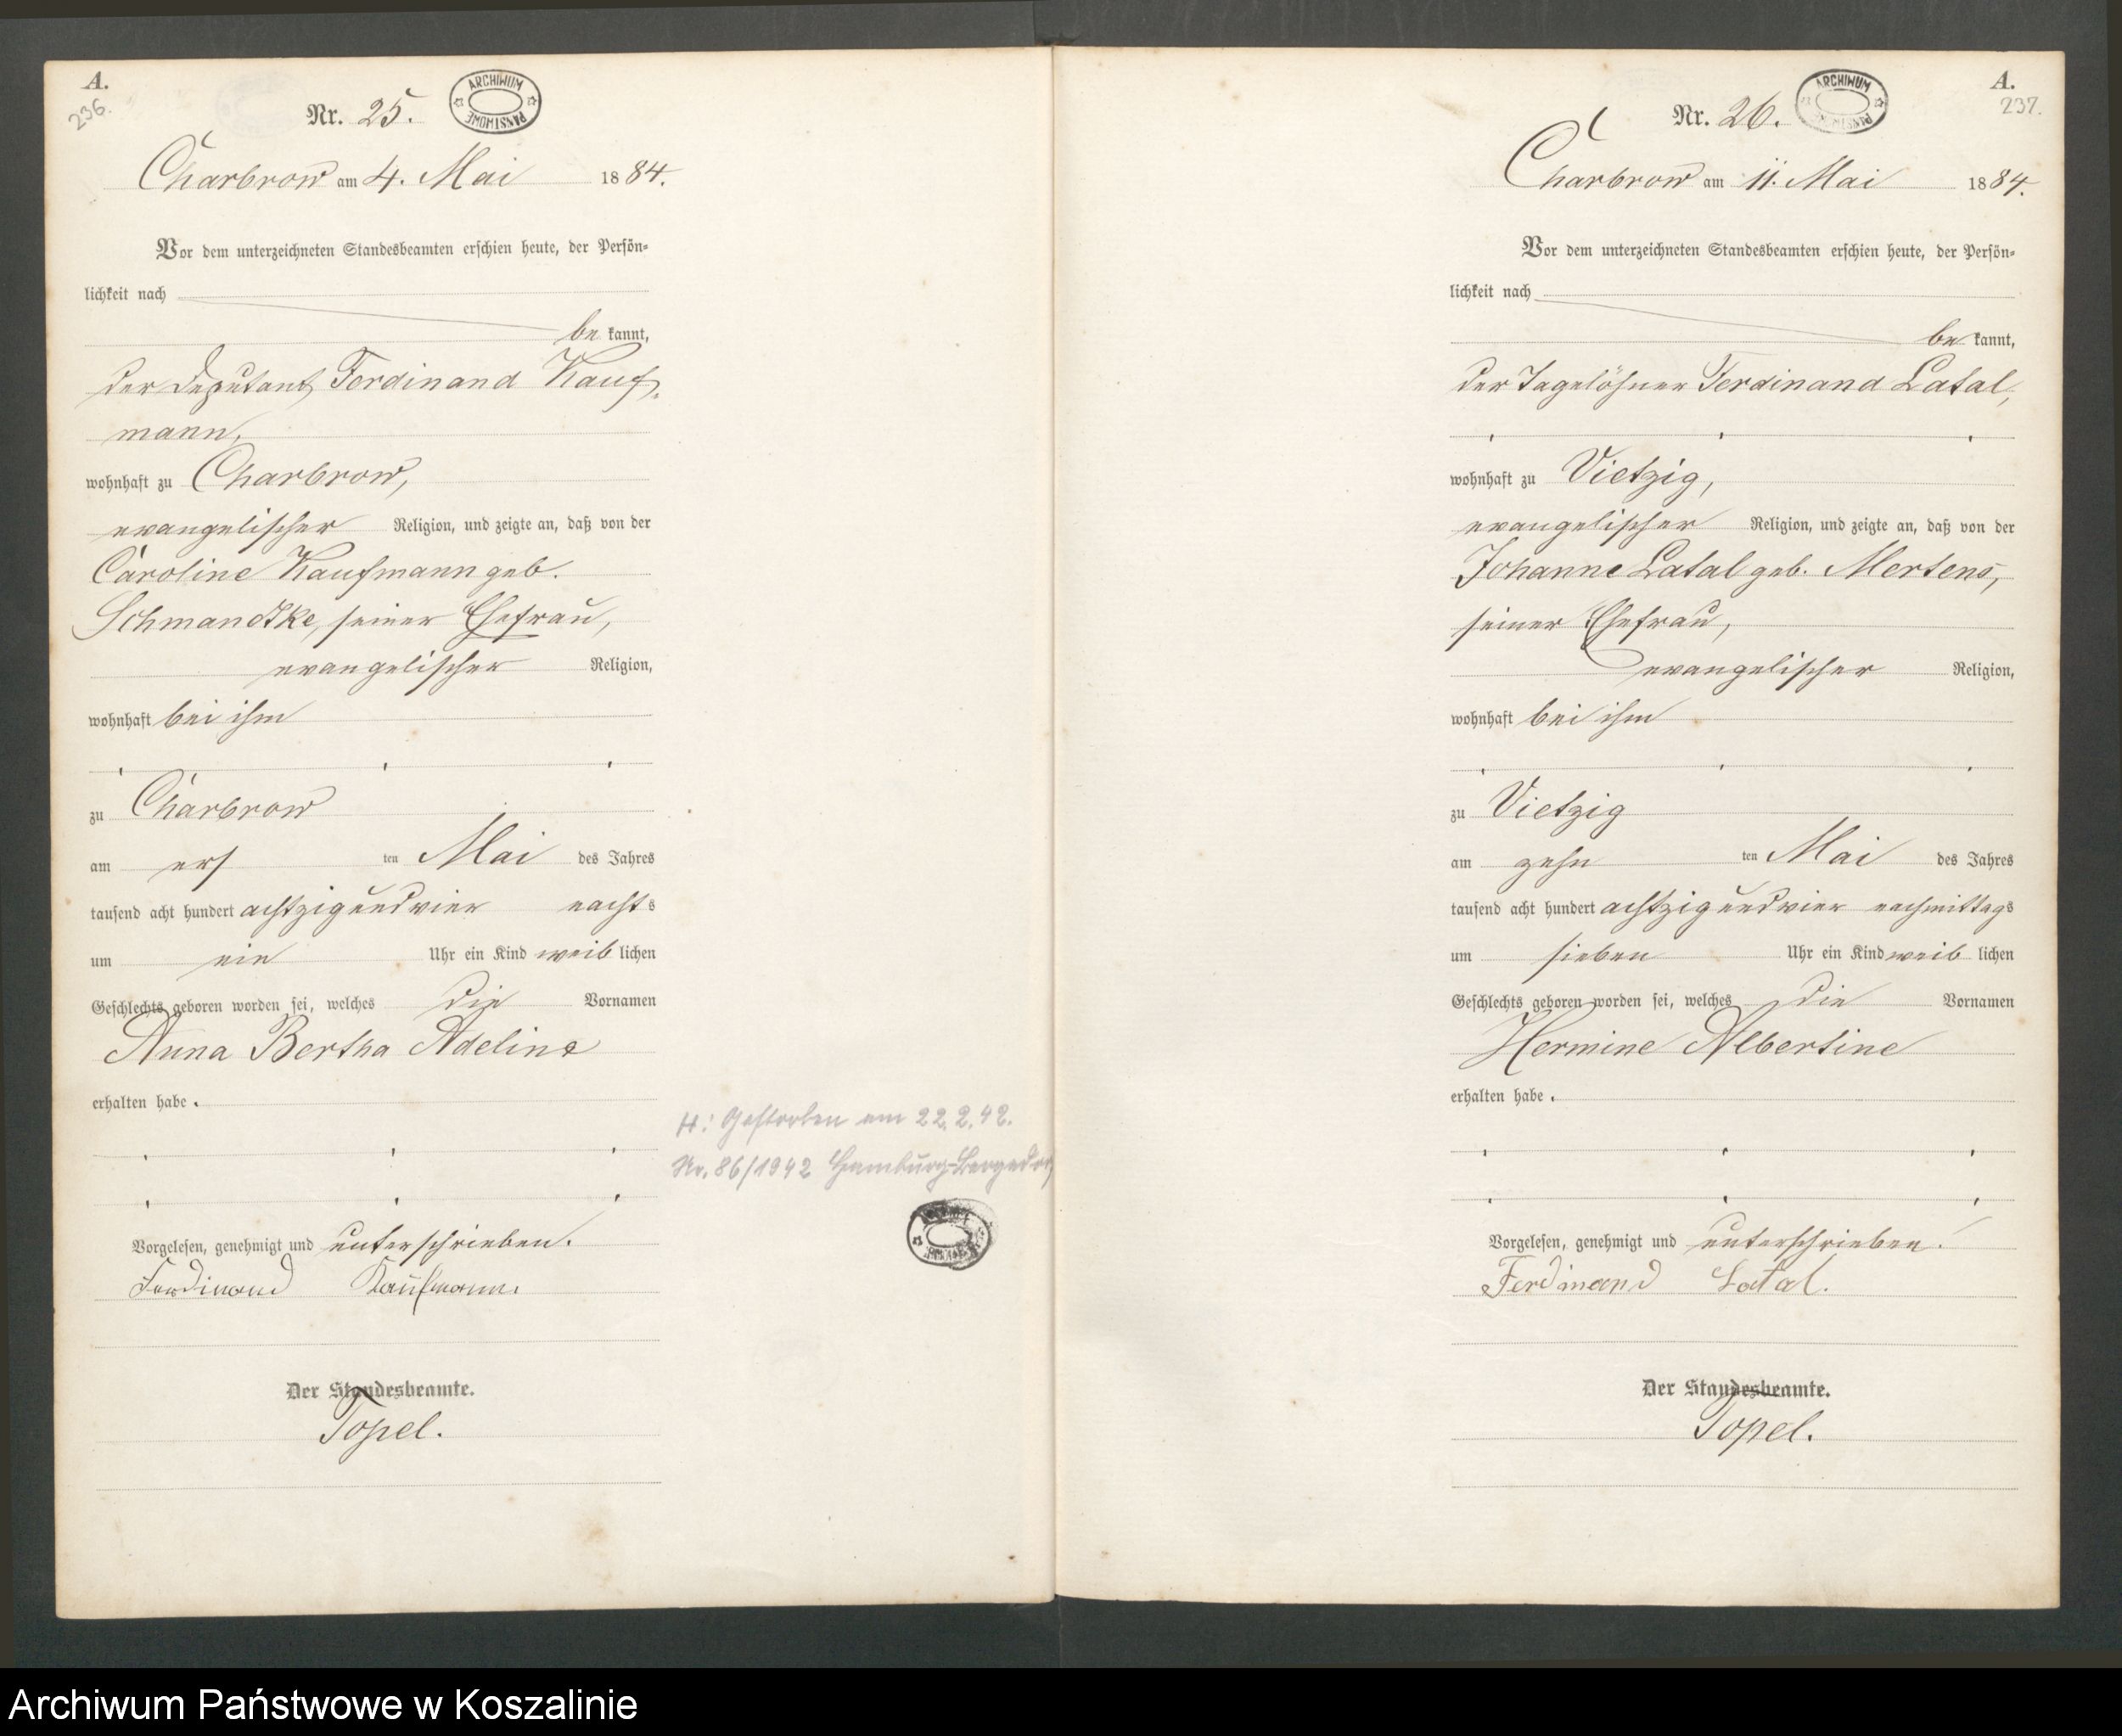 A.
236.
Nr. 25.
ARCHIWUM PAŃSTWOWE
Charbrow am 4. Mai 1884.
Vor dem unterzeichneten Standesbeamten erschien heute, der Persön-
lichkeit nach
be kannt,
der Deputant Ferdinand Kauf-
mann,
wohnhaft zu Charbrow,
evangelischer Religion, und zeigte an, daß von der
Caroline Kaufmann geb.
Schmandtke, seiner Ehefrau,
evangelischer Religion,
wohnhaft bei ihm
zu Charbrow
am ers ten Mai des Jahres
tausend acht hundert achtzig und vier nachts
um ein Uhr ein Kind weib lichen
Geschlechts geboren worden sei, welches die Vornamen
Anna Bertha Adeline
erhalten habe.
Vorgelesen, genehmigt und unterschrieben.
Ferdinand Kaufmann.
Der Standesbeamte.
Topel.
H: Gestorben am 22.2.42.
Nr. 86/1942 Hamburg-Bergedorf
A.
237.
Nr. 26.
ARCHIWUM PAŃSTWOWE
Charbrow am 11. Mai 1884.
Vor dem unterzeichneten Standesbeamten erschien heute, der Persön-
lichkeit nach
be kannt,
der Tagelöhner Ferdinand Latal,
wohnhaft zu Vietzig,
evangelischer Religion, und zeigte an, daß von der
Johanne Latal geb. Mertens,
seiner Ehefrau,
evangelischer Religion,
wohnhaft bei ihm
zu Vietzig
am zehn ten Mai des Jahres
tausend acht hundert achtzig und vier nachmittags
um sieben Uhr ein Kind weib lichen
Geschlechts geboren worden sei, welches die Vornamen
Hermine Albertine
erhalten habe.
Vorgelesen, genehmigt und unterschrieben.
Ferdinand Latal.
Der Standesbeamte.
Topel.
Archiwum Państwowe w Koszalinie